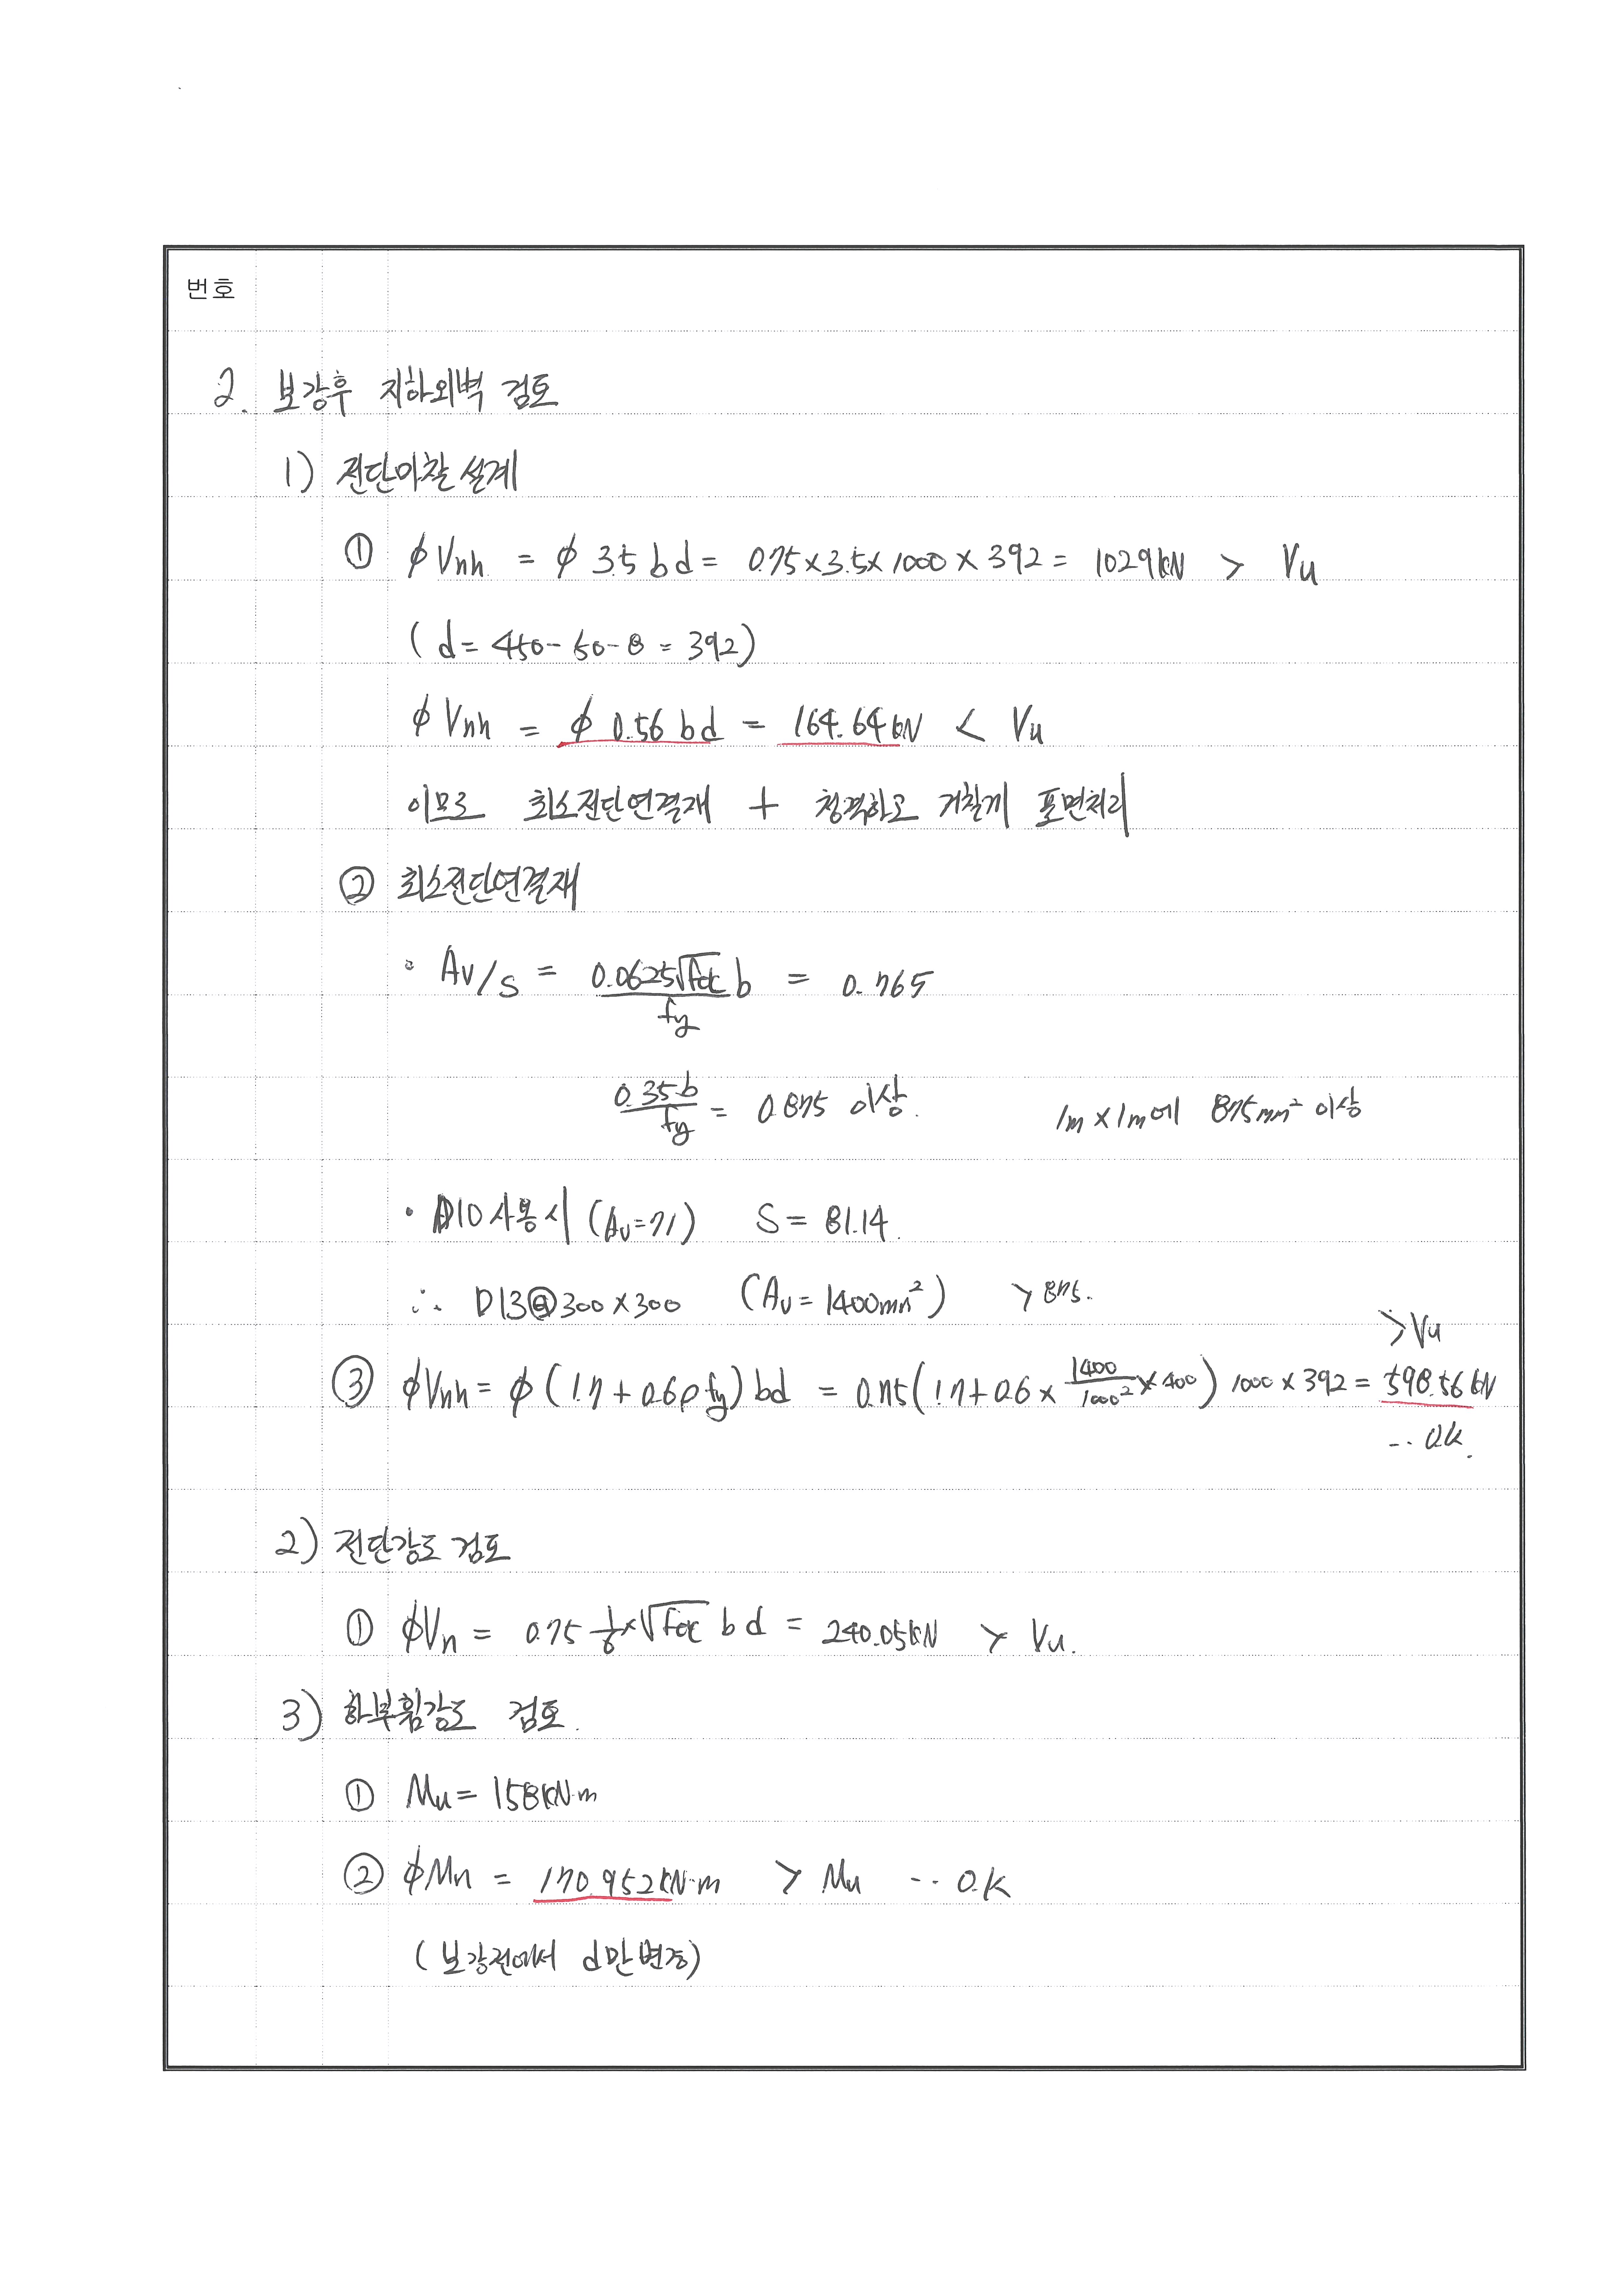 번호
2. 보강후 지하외벽 검토
1) 전단마찰 설계
① φVnh = φ 3.5 b d = 0.75×3.5×1000×392 = 1029kN > Vu
( d = 450-50-8 = 392)
φVnh = φ 0.56 bd = 164.64kN < Vu
이므로 최소전단연결재 + 청결하고 거칠게 표면처리
② 최소전단연결재
• Av/s = 0.0625√fck/fy b = 0.765
0.35b/fy = 0.875 이상. 1m×1m에 875mm² 이상
• D10 사용시 (Av=71) S = 81.14.
∴ D13@300×300 (Av = 1400mm²) > 875.
③ φVnh = φ (1.7+0.6ρfy) bd = 0.75(1.7+0.6×1400/1000²×400) 1000×392 = 598.56kN > Vu
-·· O.K.
2) 전단강도 검토
① φVn = 0.75 1/6×√fck b d = 240.05kN > Vu.
3) 하부휨강도 검토.
① Mu = 158kN·m
② φMn = 170.952kN·m > Mu -·· O.K
(보강전에서 d만 변경)